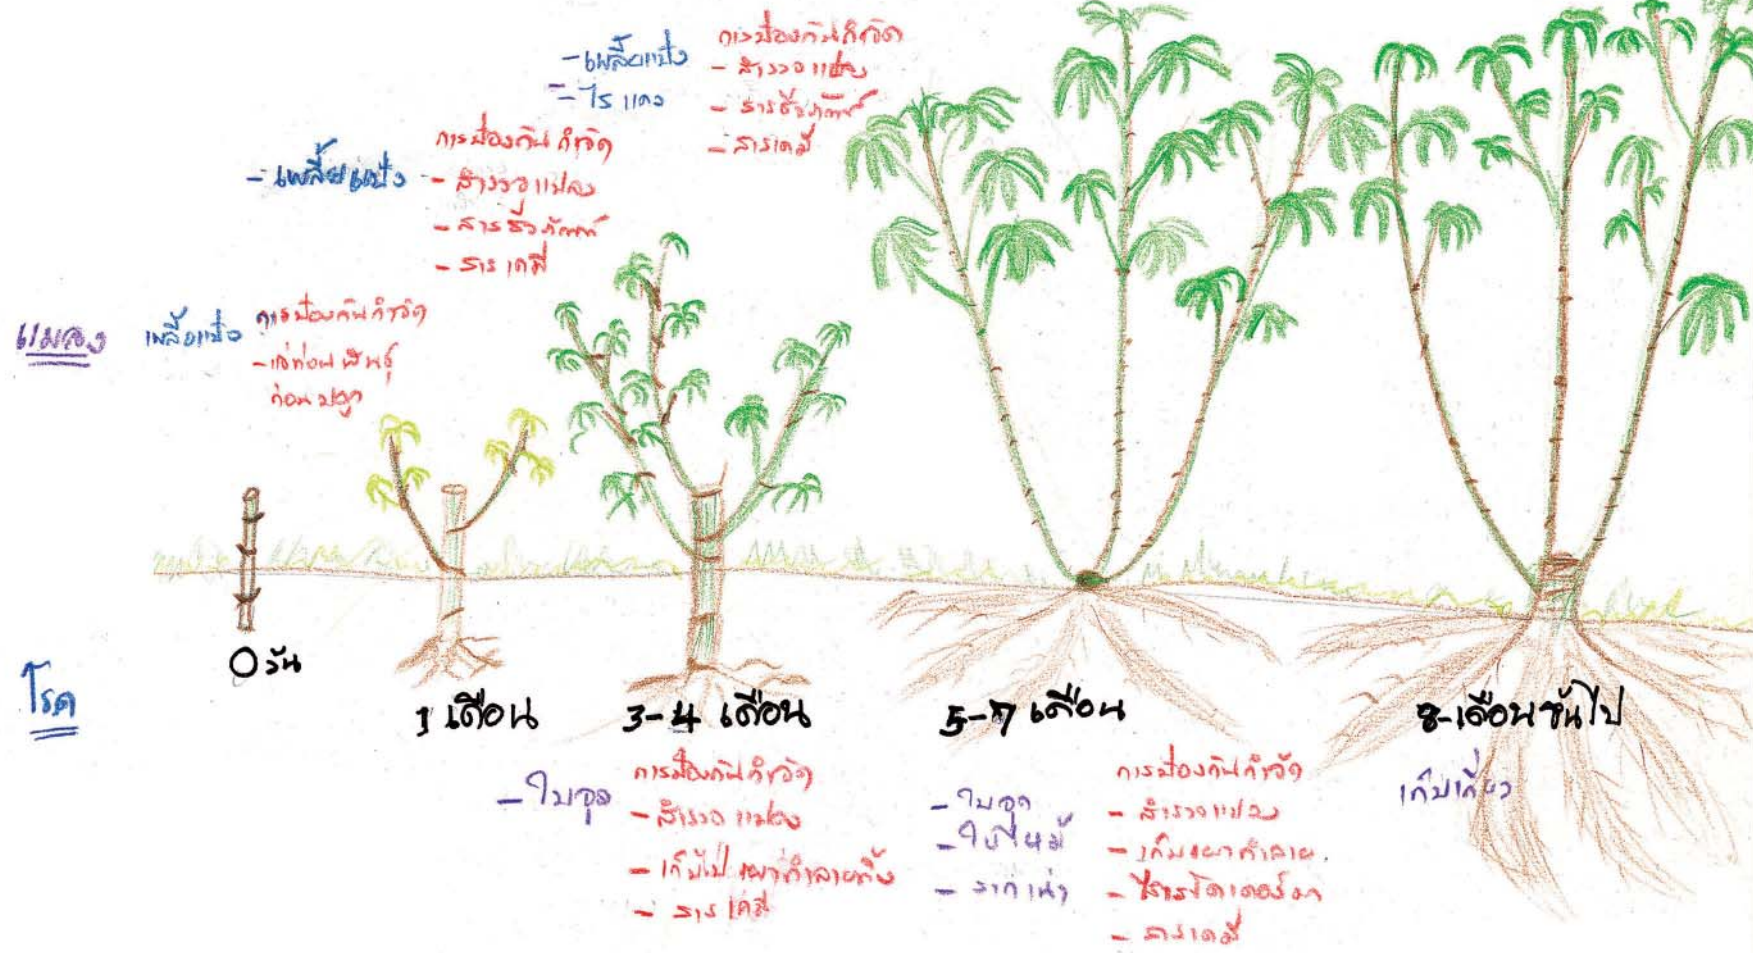 - เพลี้ยแป้ง
- ไรแดง
การป้องกันกำจัด
- สำรวจแปลง
- สารชีวภัณฑ์
- สารเคมี
- เพลี้ยแป้ง
การป้องกันกำจัด
- สำรวจแปลง
- สารชีวภัณฑ์
- สารเคมี
แมลง
เพลี้ยแป้ง
การป้องกันกำจัด
- แช่ท่อนพันธุ์
ก่อนปลูก
โรค
0 วัน
1 เดือน
3-4 เดือน
5-7 เดือน
8-เดือนขึ้นไป
- ใบจุด
การป้องกันกำจัด
- สำรวจแปลง
- เก็บไปเผาทำลายทิ้ง
- สารเคมี
- ใบจุด
- ใบไหม้
- รากเน่า
การป้องกันกำจัด
- สำรวจแปลง
- เก็บเผาทำลาย
- สารเคมี
เก็บเกี่ยว